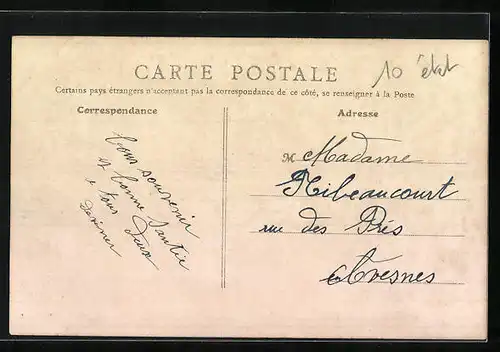 CARTE POSTALE
10 état
Certains pays étrangers n'acceptant pas la correspondance de ce côté, se renseigner à la Poste
Correspondance
Adresse
bons souvenir
et bonne Santée
a tous Deux
M Madame
Ribeaucourt
rue des Prés
Avesnes